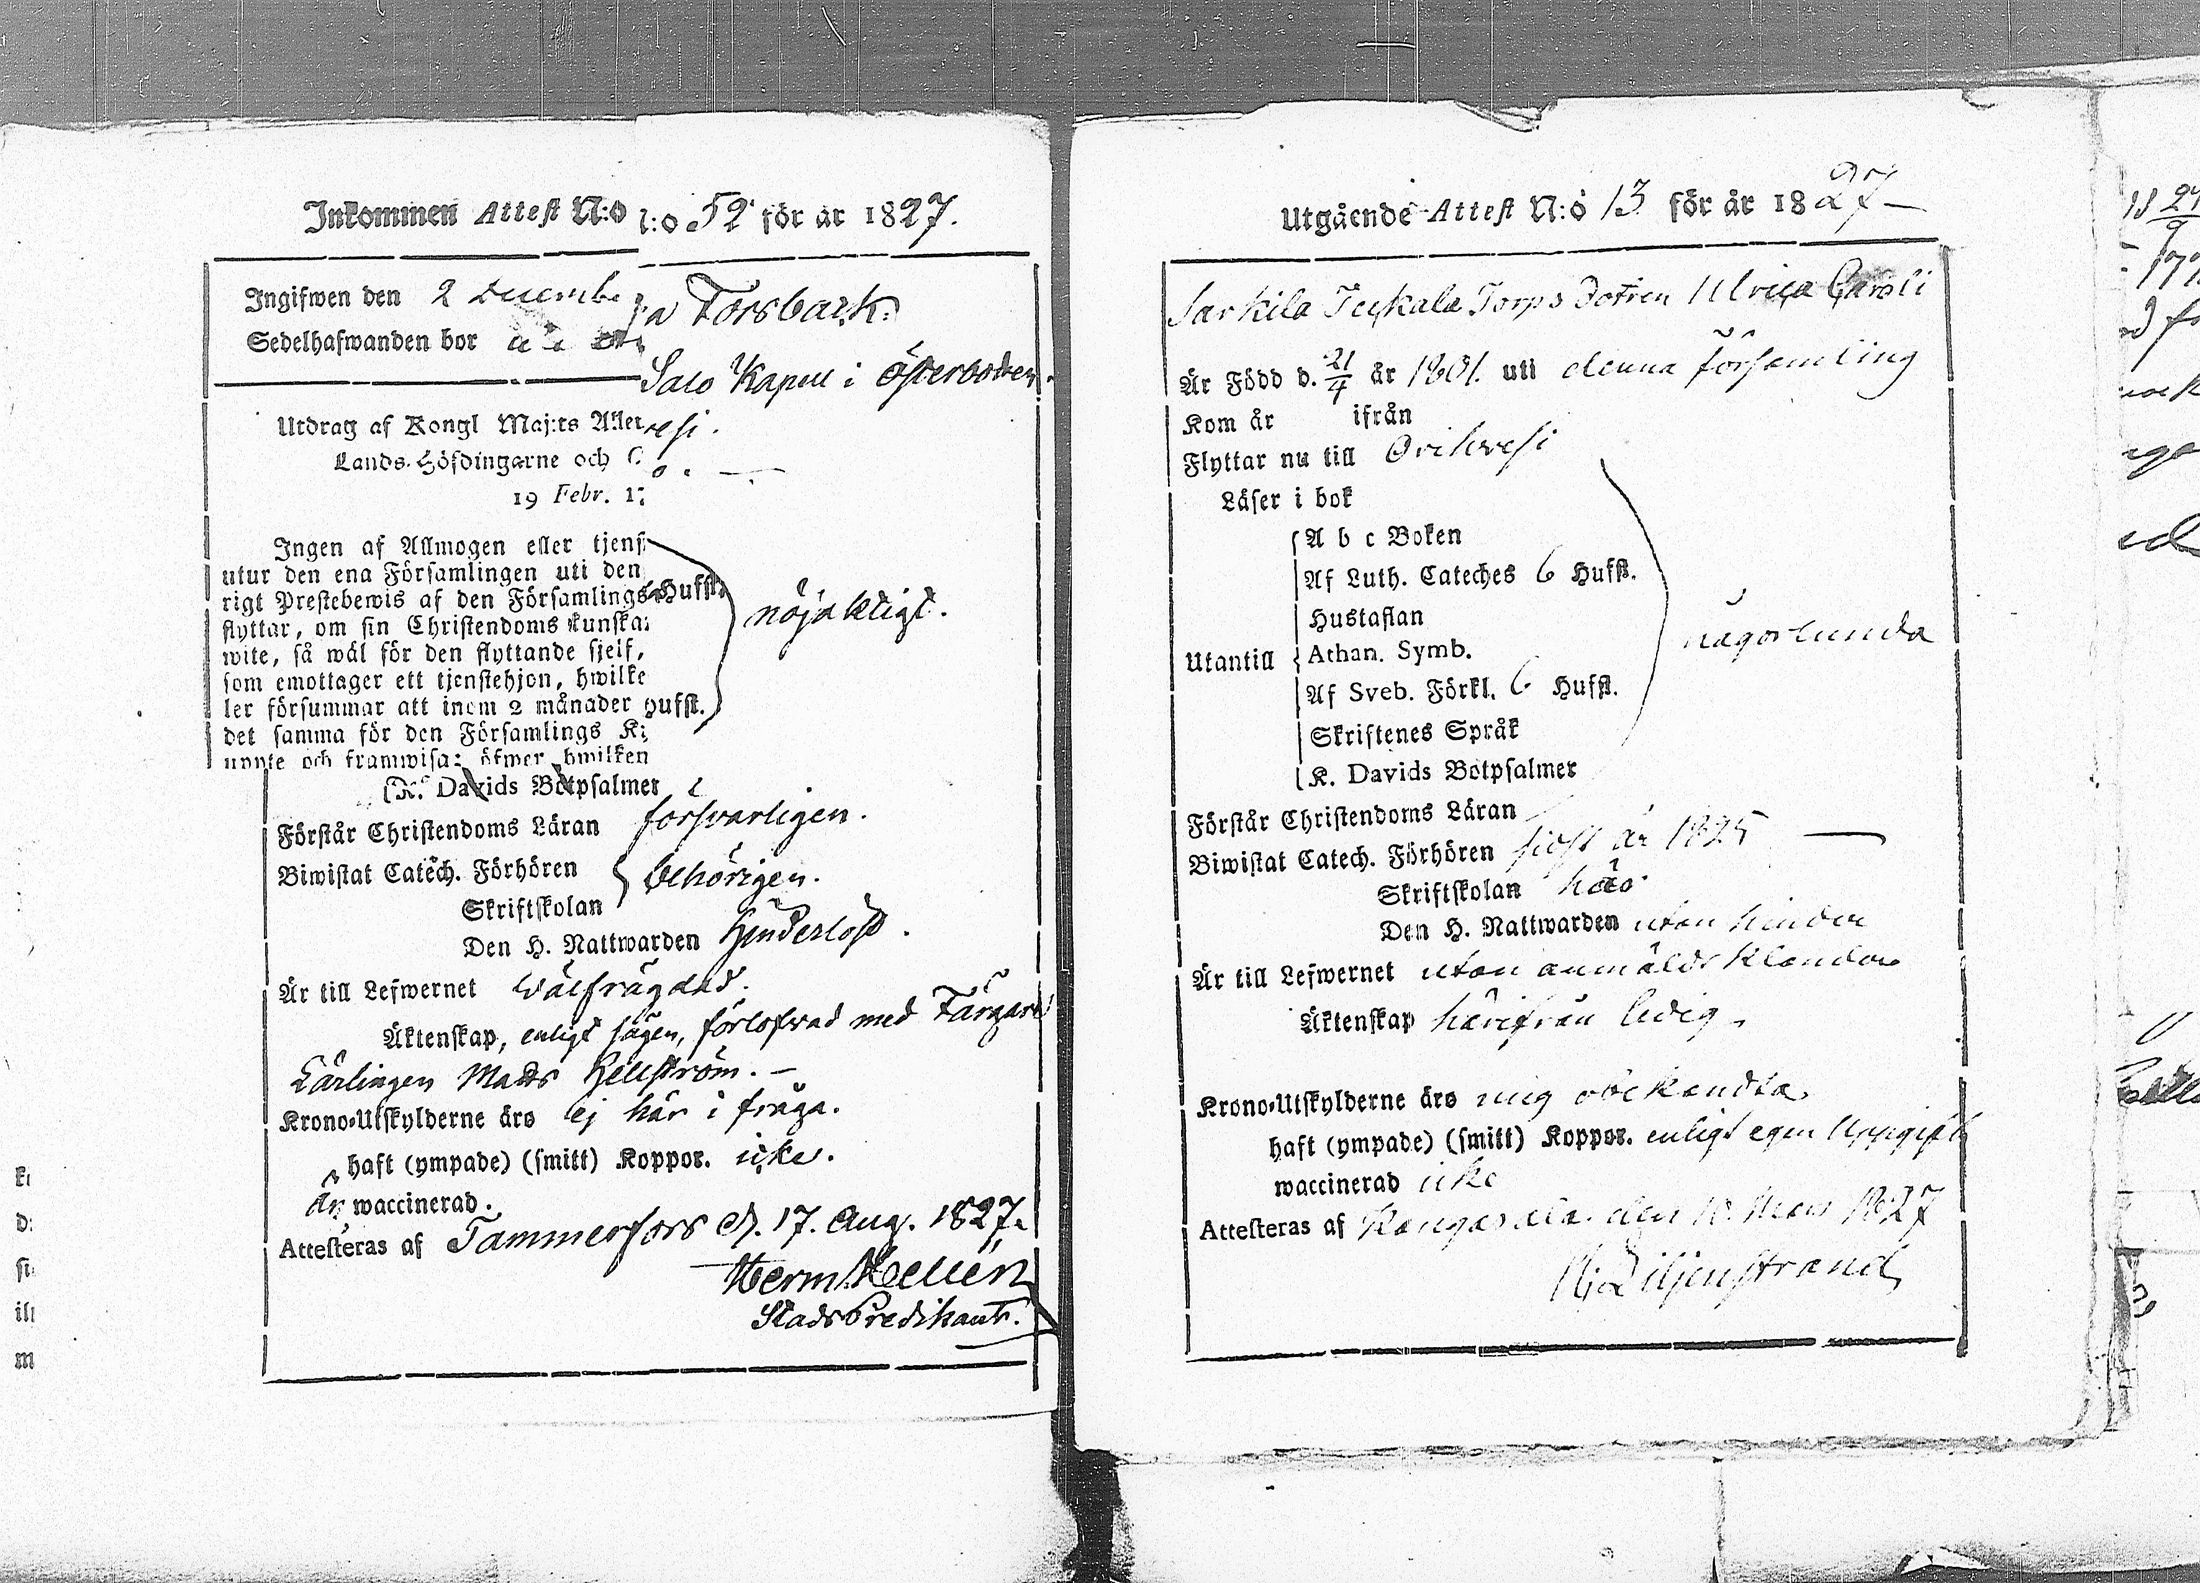 Inkommen Attest N:o
l:o 52 för år 1827.
Ingifwen den 2 Decembe
a Forsback
Sedelhafwanden bor
Salo Kapell i Österbotten.
Utdrag af Kongl Maj:ts Aller
Lands-Höfdingarne och
19 Febr. 17
Ingen af Allmogen eller tjens
utur den ena Församlingen uti den
rigt Prestebewis af den Församlings
Hufst.
flyttar, om sin Christendoms kunska
nöjaktigt.
wite, så wäl för den flyttande sjelf,
som emottager ett tjenstehjon, hwilke
ler försummar att inom 2 månader
Hufst.
det samma för den Församlings K
uppte och framwisa: öfwer hwilken
K. Davids Botpsalmer
Förstår Christendoms Läran försvarligen.
Biwistat Catech. Förhören
behörigen.
Skriftskolan
Den H. Nattwarden Hinderlöst.
Är till Lefwernet Wälfrägdad.
Äktenskap, enligt sägen, förlofvad med Färgare
Lärlingen Matts Hellström. –
Krono-Utskylderne äro ej här i fråga.
haft (ympade) (smitt) Koppor. icke.
Är waccinerad.
Attesteras af Tammerfors d. 17. Aug. 1827.
Herm Hellén
StadsPredikant.
Utgående Attest N:o 13 för år 1827 –
Sarkila Torps Dotren Ulrica Caroli
Är Född d. 21/4 år 1801. uti denna församling
Kom år ifrån
Flyttar nu till Orihvesi
Läser i bok
A b c Boken
Af Luth. Cateches 6 Hufst.
Hustaflan
någorlunda
Athan. Symb.
Utantill
Af Sveb. Förkl. 6 Hufst.
Skriftenes Språk
K. Davids Botpsalmer
Förstår Christendoms Läran
Biwistat Catech. Förhören sidst år 1825 —
Skriftskolan
Den H. Nattwarden utan hinder
Är till Lefwernet utan anmäldt klander
Äktenskap härifrån ledig.
Krono-Utskylderne äro mig obekandta.
haft (ympade) (smitt) Koppor. enligt egen Uppgift
waccinerad icke
Attesteras af Kangasala den 10 Mars 1827
Liljenstrand